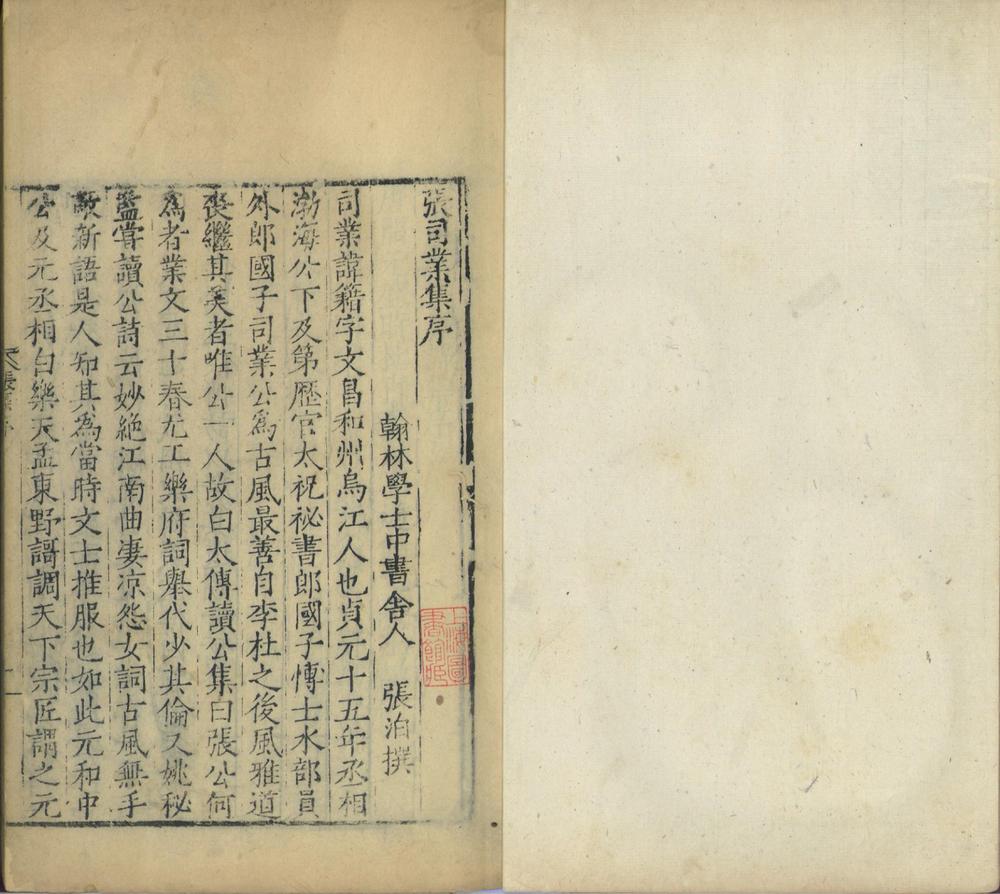 張司業集序
翰林學士中書舍人 張洎撰
司業諱籍字文昌和州烏江人也貞元十五年丞相
渤海公下及第歷官太祝祕書郎國子博士水部員
外郎國子司業公為古風最善自李杜之後風雅道
喪繼其美者唯公一人故白太傅讀公集曰張公何
為者業文三十春尤工樂府詞舉代少其倫又姚秘
監嘗讀公詩云妙絕江南曲凄涼怨女詞古風無手
敵新語是人知其為當時文士推服也如此元和中
公及元丞相白樂天孟東野謌調天下宗匠謂之元
上海圖書館藏